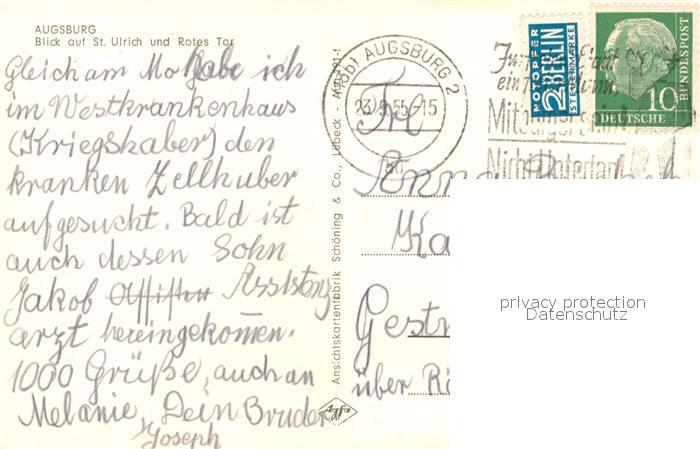 AUGSBURG
Blick auf St. Ulrich und Rotes Tor
Gleich am Mo habe ich
im Westkrankenhaus
(Kriegshaber) den
kranken Zellhuber
aufgesucht. Bald ist
auch dessen Sohn
Jakob Assistenz
arzt hereingekommen.
1000 Grüße, auch an
Melanie, Dein Bruder
Joseph
Ansichtskartenfabrik Schöning & Co., Lübeck
Agfa
AUGSBURG 2
23.9.55.-15
NOTOPFER
2 BERLIN
STEUERMARKE
DEUTSCHE
BUNDESPOST
10
Anna
Ka
Gest
über Rö
privacy protection
Datenschutz